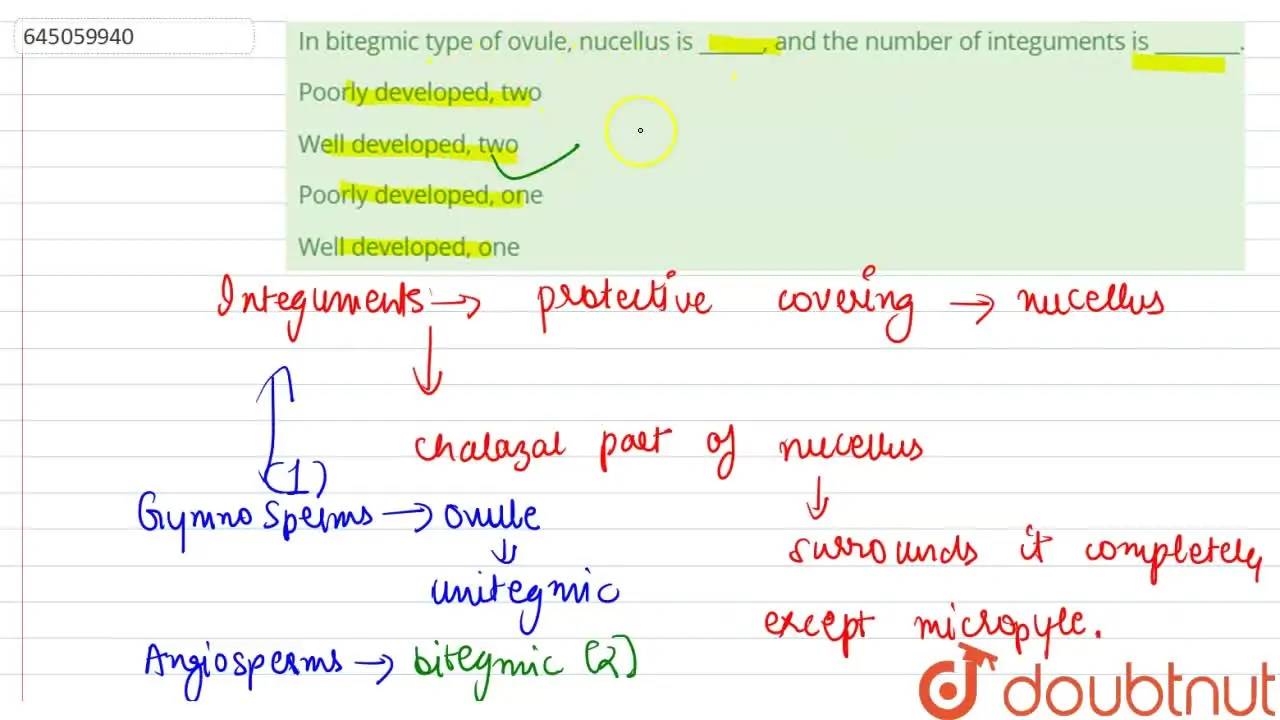 645059940
In bitegmic type of ovule, nucellus is ______, and the number of integuments is ________.
Poorly developed, two
Well developed, two
Poorly developed, one
Well developed, one
Integuments → protective covering → nucellus
chalazal part of nucellus
(1)
Gymnosperms → ovule
surrounds it completely
unitegmic
except micropyle.
Angiosperms → bitegmic (2)
doubtnut